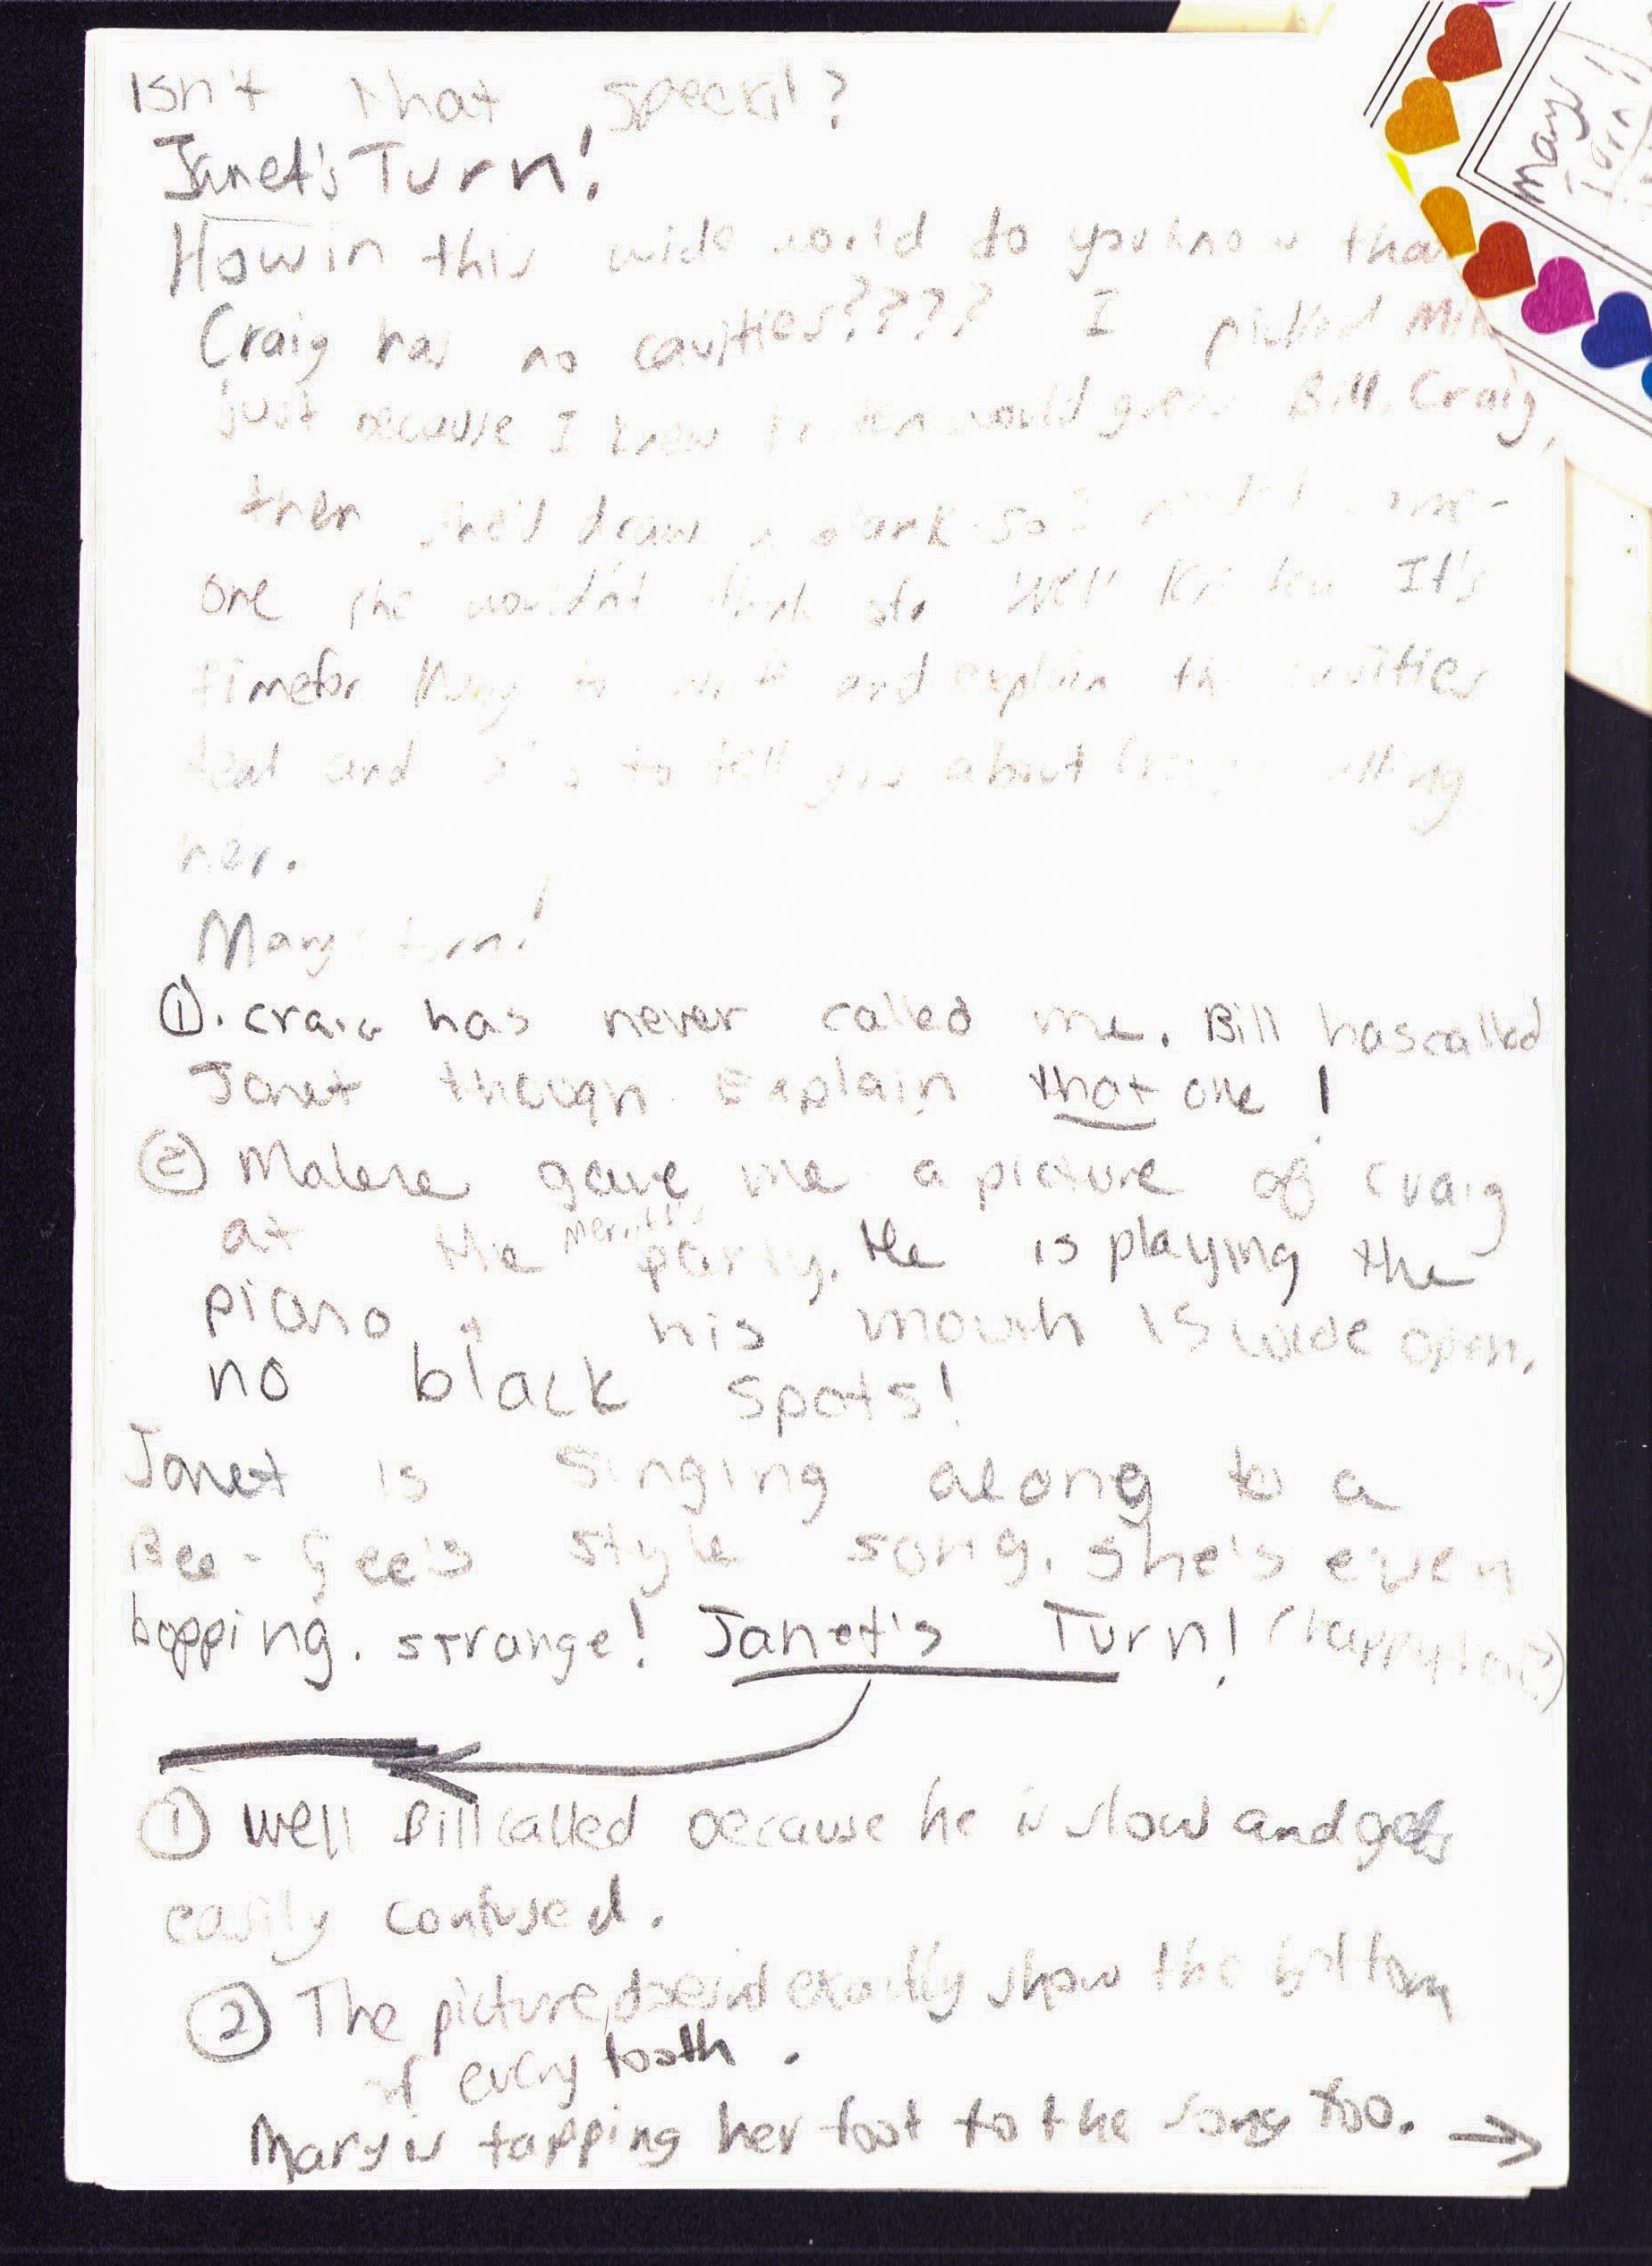 Isn't that special?
Janet's Turn!
How in this wide world do you know tha
Craig has no cavities???? I picked Mik
just because I knew would guess Bill, Craig,
then she'd draw a blank so I
one she wouldn't think of. Well It's
time for Mary to write and explain the cavities
deal and to tell you about calling
her.
Mary's turn!
①. Craig has never called me. Bill has called
Janet though. Explain that one!
② Malene gave me a picture of Craig
at the Merritt's party. He is playing the
piano & his mouth is wide open,
no black spots!
Janet is singing along to a
Bee-Gee's style song. She's even
bopping. strange! Janet's Turn!
① Well Bill called because he is slow and gets
easily confused.
② The picture doesn't exactly show the bottom
of every tooth.
Mary is tapping her foot to the song too. →
Mary's
Turn!